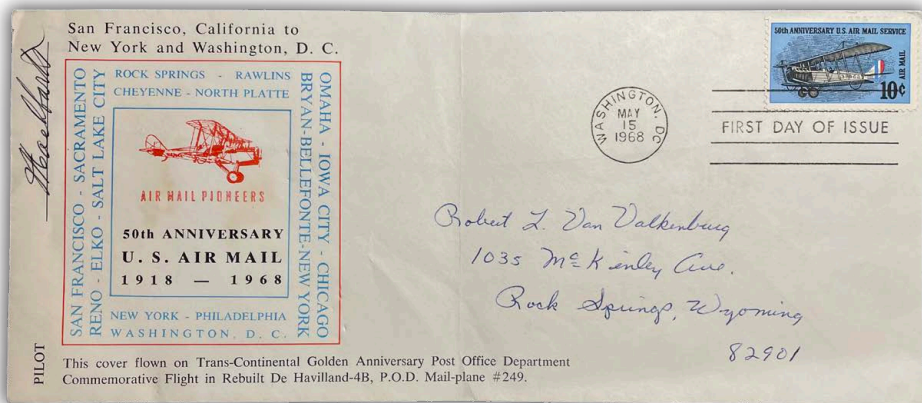 San Francisco, California to
New York and Washington, D. C.
ROCK SPRINGS - RAWLINS
CHEYENNE - NORTH PLATTE
SAN FRANCISCO - SACRAMENTO
RENO - ELKO - SALT LAKE CITY
OMAHA - IOWA CITY - CHICAGO
BRYAN-BELLEFONTE-NEW YORK
AIR MAIL PIONEERS
50th ANNIVERSARY
U. S. AIR MAIL
1918 — 1968
NEW YORK - PHILADELPHIA
WASHINGTON, D. C.
PILOT
This cover flown on Trans-Continental Golden Anniversary Post Office Department
Commemorative Flight in Rebuilt De Havilland-4B, P.O.D. Mail-plane #249.
WASHINGTON, DC
MAY
15
1968
FIRST DAY OF ISSUE
50th ANNIVERSARY U.S. AIR MAIL SERVICE
AIR MAIL
10¢
Robert L. Van Valkenburg
1035 McKinley Ave.
Rock Springs, Wyoming
82901